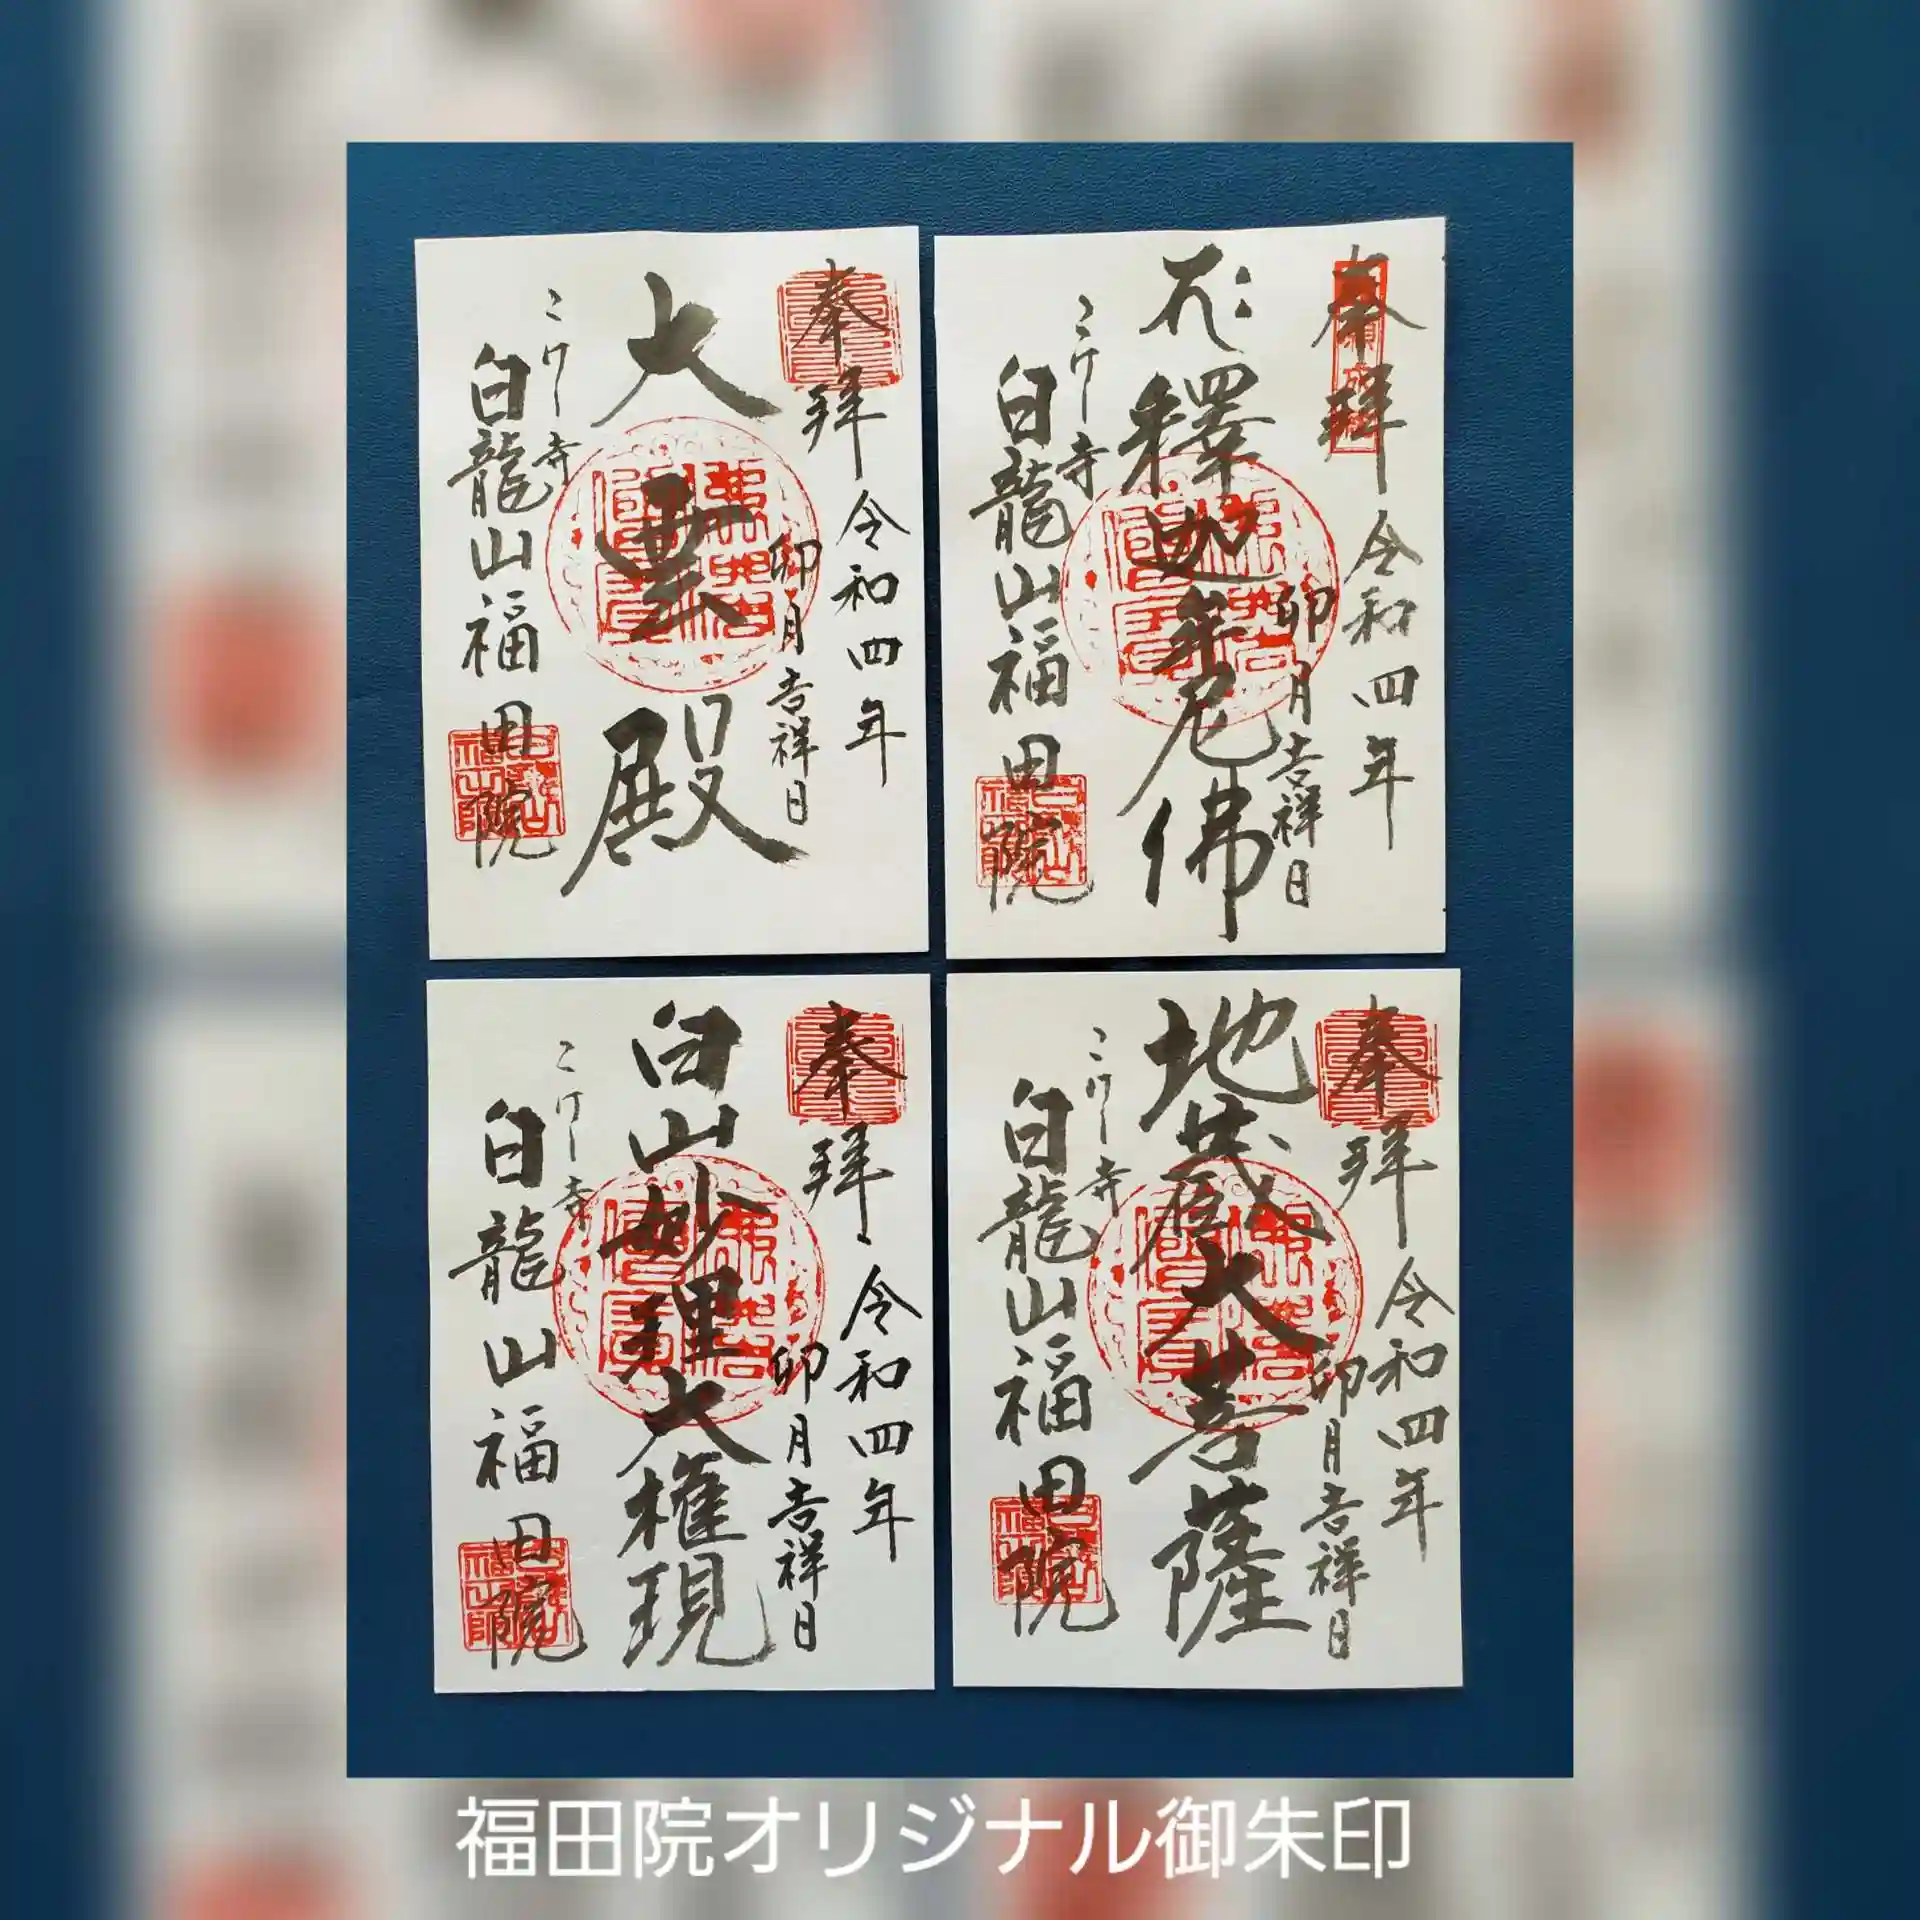 奉拝 令和四年
卯月吉祥日
大雲殿
こけし寺
白龍山福田院
奉拝 令和四年
卯月吉祥日
釋迦牟尼佛
こけし寺
白龍山福田院
奉拝 令和四年
卯月吉祥日
白山妙理大権現
こけし寺
白龍山福田院
奉拝 令和四年
卯月吉祥日
地蔵大菩薩
こけし寺
白龍山福田院
福田院オリジナル御朱印